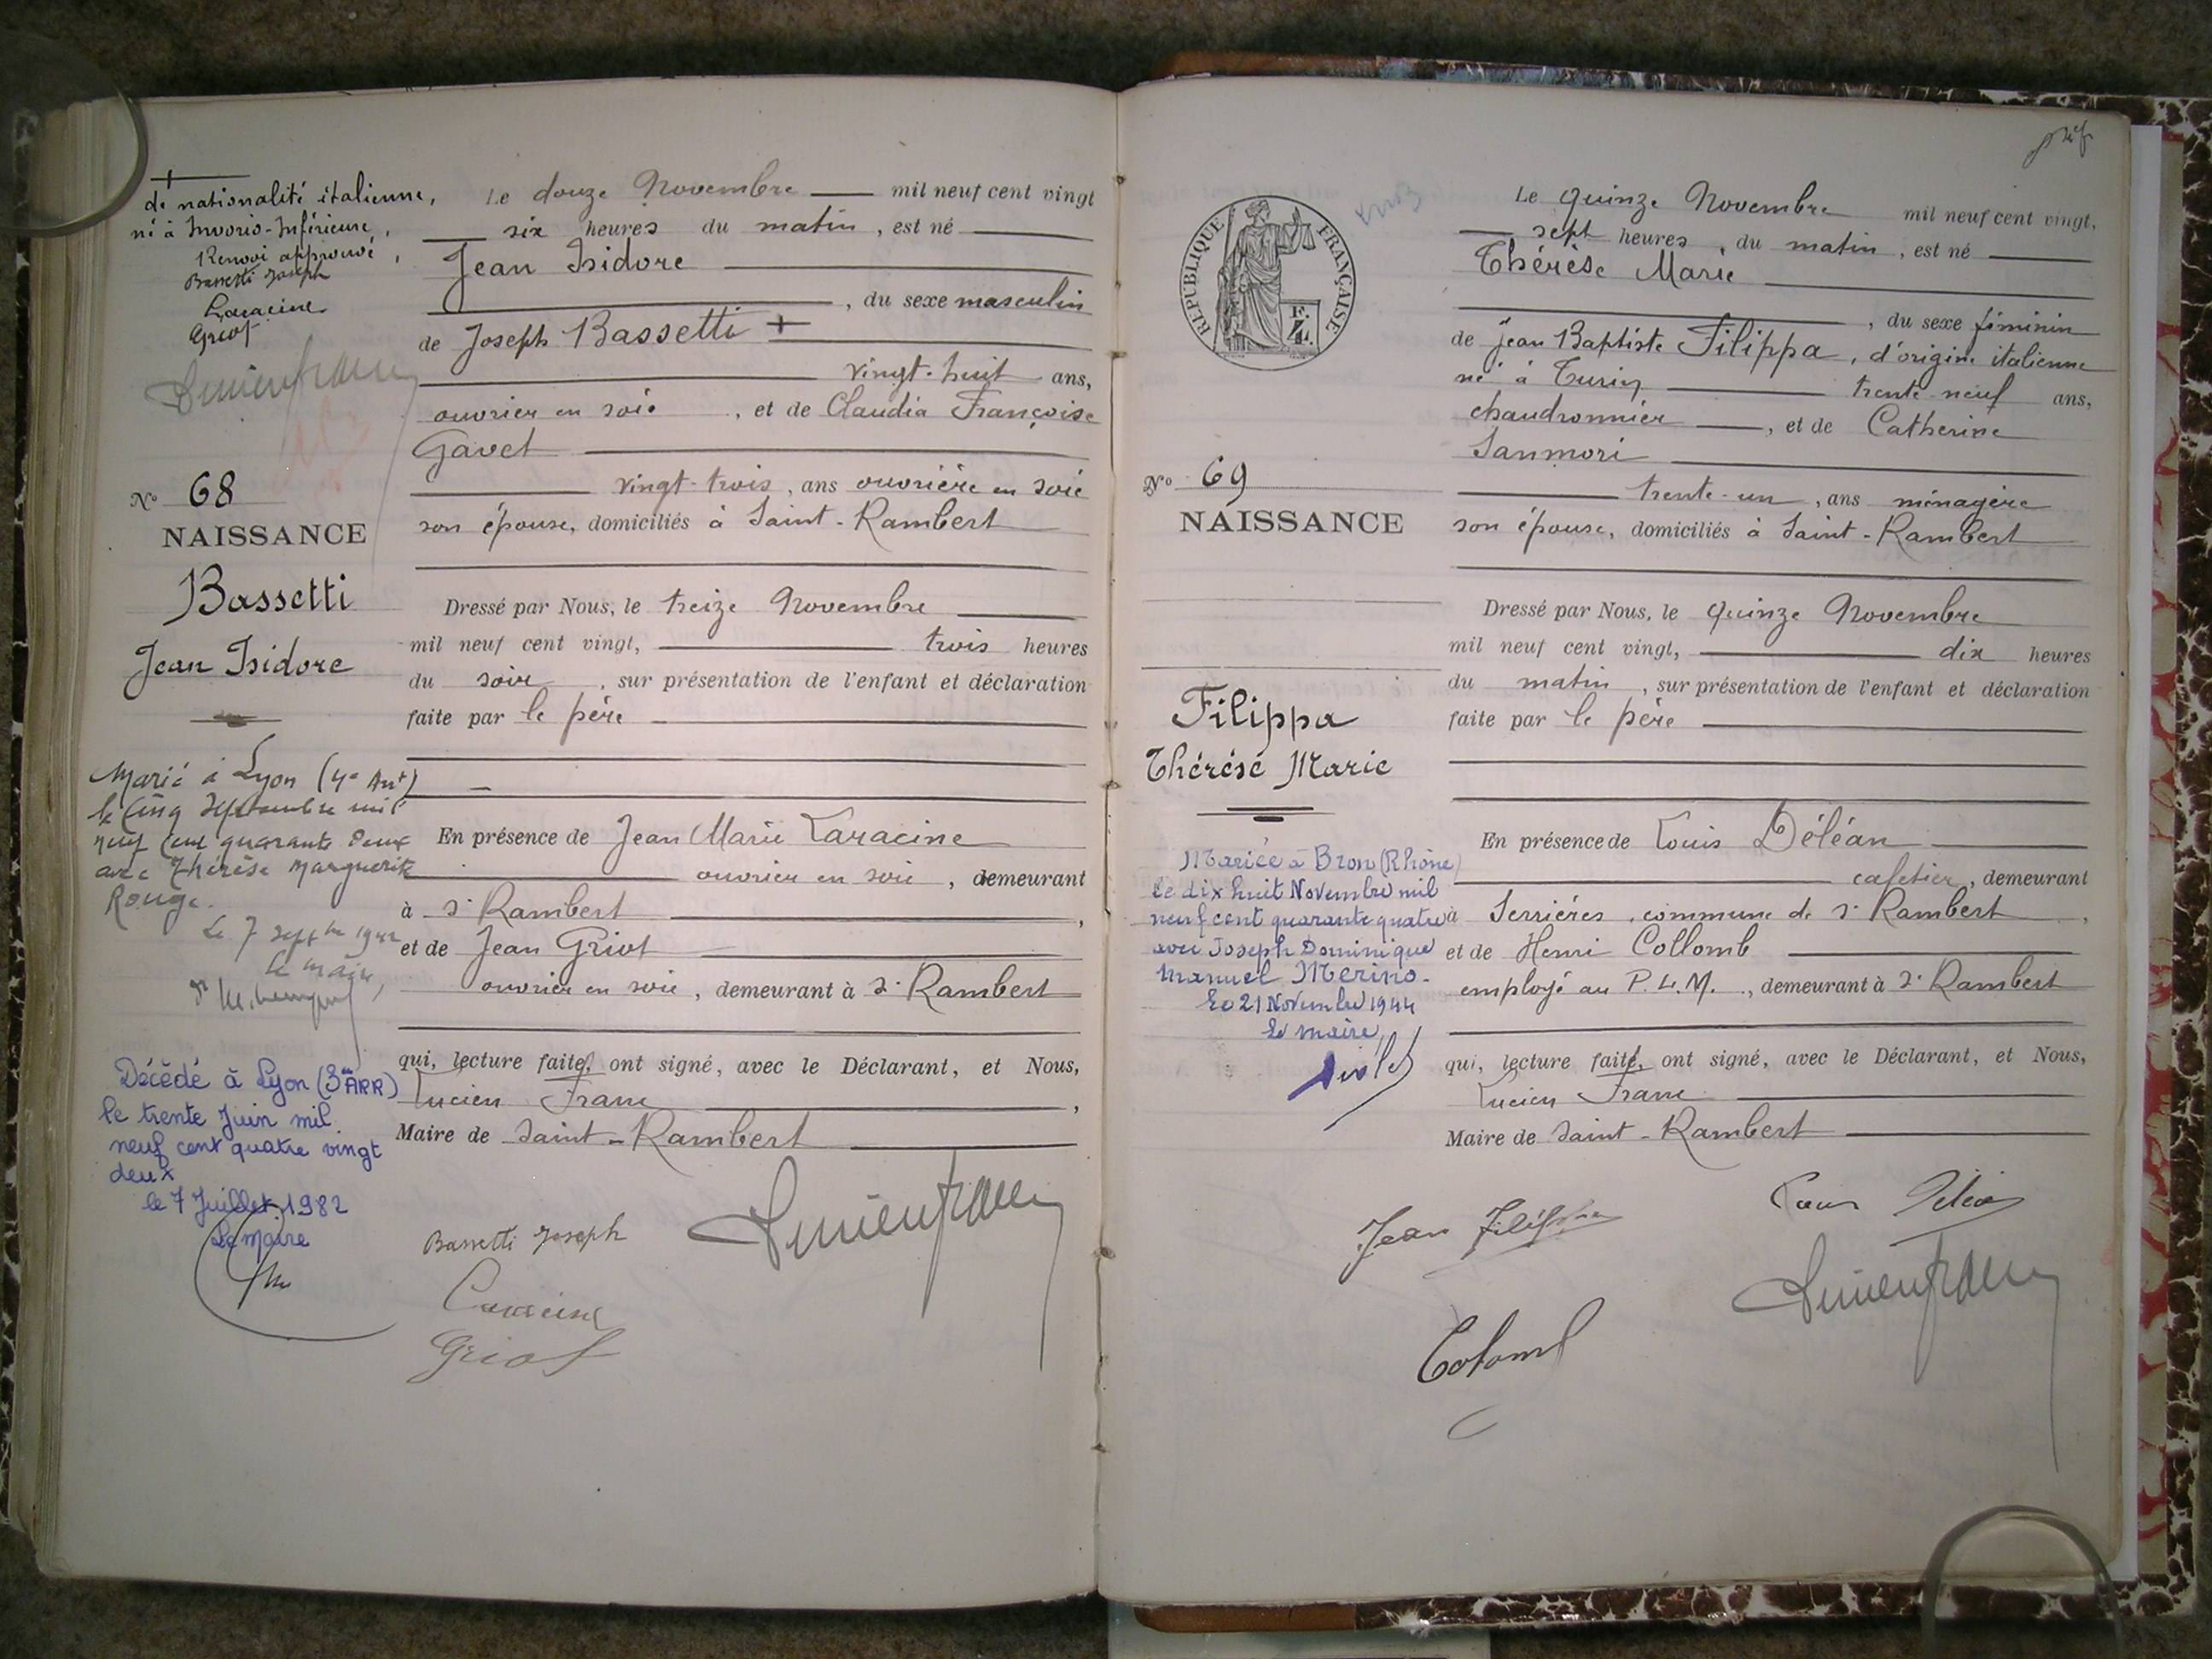 de nationalité italienne,
né à Invorio-Inférieure,
Renvoi approuvé,
Bassetti Joseph
Laracine
Griot
N° 68
NAISSANCE
Bassetti
Jean Isidore
Marié à Lyon (4e Art)
le cinq septembre mil
neuf cent quarante deux
avec Thérèse Marguerite
Rouge.
Le 7 septbre 1942
Le maire,
Décédé à Lyon (3ème ARR)
le trente Juin mil
neuf cent quatre vingt
deux
le 7 Juillet 1982
Le Maire
Le douze Novembre mil neuf cent vingt
six heures du matin, est né
Jean Isidore
, du sexe masculin
de Joseph Bassetti +
vingt-huit ans,
ouvrier en soie, et de Claudia Françoise
Gavet
vingt-trois, ans ouvrière en soie
son épouse, domiciliés à Saint-Rambert
Dressé par Nous, le treize Novembre
mil neuf cent vingt, trois heures
du soir, sur présentation de l'enfant et déclaration
faite par le père
En présence de Jean Marie Laracine
ouvrier en soie, demeurant
à St Rambert,
et de Jean Griot
ouvrier en soie, demeurant à St Rambert
qui, lecture faite, ont signé, avec le Déclarant, et Nous,
Lucien Franc,
Maire de Saint-Rambert
Bassetti Joseph
Laracine
Griot
RÉPUBLIQUE FRANÇAISE
N° 69
NAISSANCE
Filippa
Thérèse Marie
Mariée à Bron (Rhône)
le dix huit Novembre mil
neuf cent quarante quatre
avec Joseph Dominique
Manuel Merino.
Le 21 Novembre 1944
Le maire,
Le quinze Novembre mil neuf cent vingt,
sept heures, du matin, est né
Thérèse Marie
, du sexe féminin
de Jean Baptiste Filippa, d'origine italienne
né à Turin trente neuf ans,
chaudronnier, et de Catherine
Sanmori
trente-un, ans ménagère
son épouse, domiciliés à Saint-Rambert
Dressé par Nous, le quinze Novembre
mil neuf cent vingt, dix heures
du matin, sur présentation de l'enfant et déclaration
faite par le père
En présence de Louis Déléan
cafetier, demeurant
à Serrières, commune de St Rambert,
et de Henri Collomb
employé au P.L.M., demeurant à St Rambert
qui, lecture faite, ont signé, avec le Déclarant, et Nous,
Lucien Franc
Maire de Saint-Rambert
Jean Filippa
Colomb